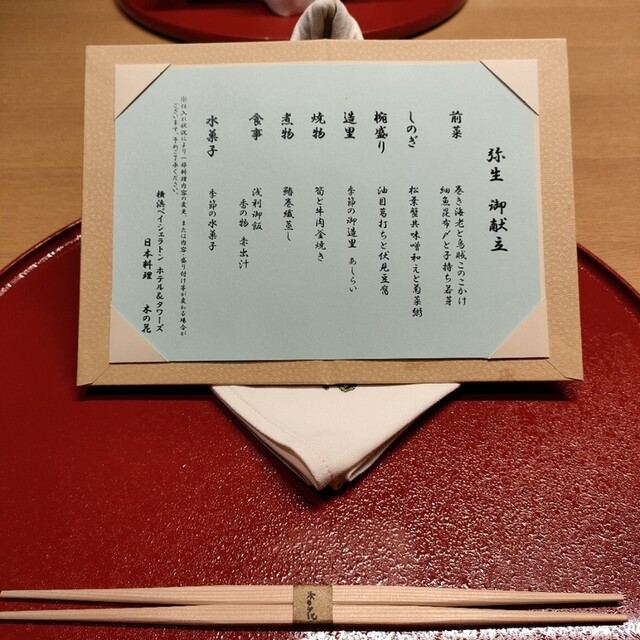 弥生 御献立
前菜
巻き海老と烏賊このこかけ
細魚昆布〆と子持ち若芽
しのぎ
松葉蟹共味噌和えと菊菜粥
椀盛り
油目葛打ちと伏見豆腐
造里
季節の御造里 あしらい
焼物
筍と牛肉釜焼き
煮物
鰆巻繊蒸し
食事
浅利御飯
香の物 赤出汁
水菓子
季節の水菓子
※仕入れ状況により一部料理内容の変更、または内容・盛り付け等が変わる場合が
ございます。予めご了承ください。
横浜ベイシェラトン ホテル&タワーズ
日本料理 木の花
木の花